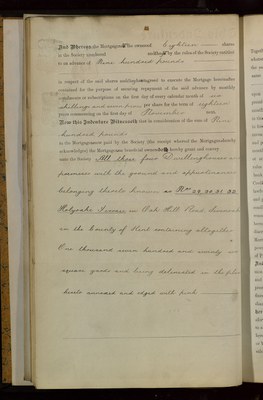 And Whereas the Mortgagors he returned Eighteen shares
in the Society numbered entitling by the rules of the Society entitled
to an advance of Nine hundred pounds
in respect of the said shares and agreed to execute the Mortgage hereinafter
contained for the purpose of securing repayment of the said advance by monthly
repayments or subscriptions on the first day of every calendar month of
shillings and seven pence per share for the term of eighteen
years commencing on the first day of November
Now this Indenture Witnesseth that in consideration of the sum of Nine
hundred pounds
to the Mortgagors paid by the Society (the receipt whereof the Mortgagors hereby
acknowledge) the Mortgagors hereby grant and convey
unto the Society All those four Dwellinghouses and
premises with the ground and appurtenances
belonging thereto known as Nos 29, 30, 31, 32
Holyoake Terrace in Oak Hill Road Sevenoaks
in the County of Kent containing altogether
One thousand seven hundred and ninety
square yards and being delineated on the plan
hereto annexed and edged with pink